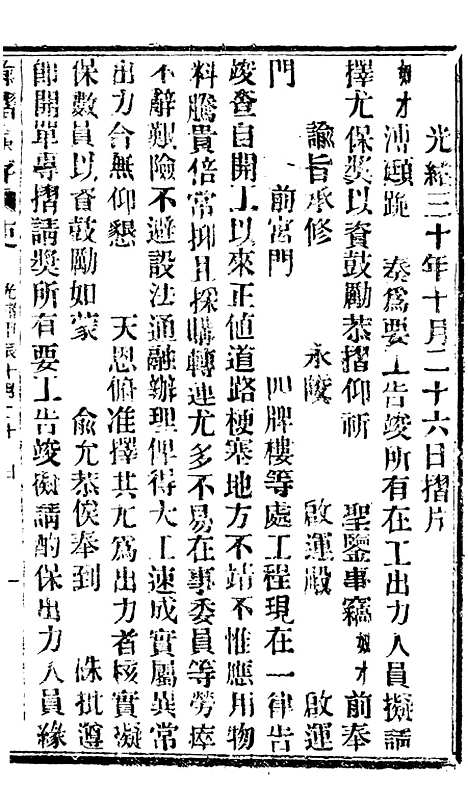 光緒三十年十月二十六日摺片
奴才溥頲跪 奏爲要工告竣所有在工出力人員擬請
擇尤保獎以資鼓勵恭摺仰祈 聖鑒事竊奴才前奉
諭旨承修 永陵 啟運殿 啟運
門 前宮門 四牌樓等處工程現在一律告
竣查自開工以來正値道路梗塞地方不靖不惟應用物
料騰貴倍常抑且採購轉運尤多不易在事委員等勞瘁
不辭艱險不避設法通融辦理俾得大工速成實屬異常
出力合無仰懇 天恩俯准擇其尤爲出力者核實擬
保數員以資鼓勵如蒙 俞允恭俟奉到 硃批遵
卽開單專摺請獎所有要工告竣擬請酌保出力人員緣
光緒甲辰十月二十 日 一